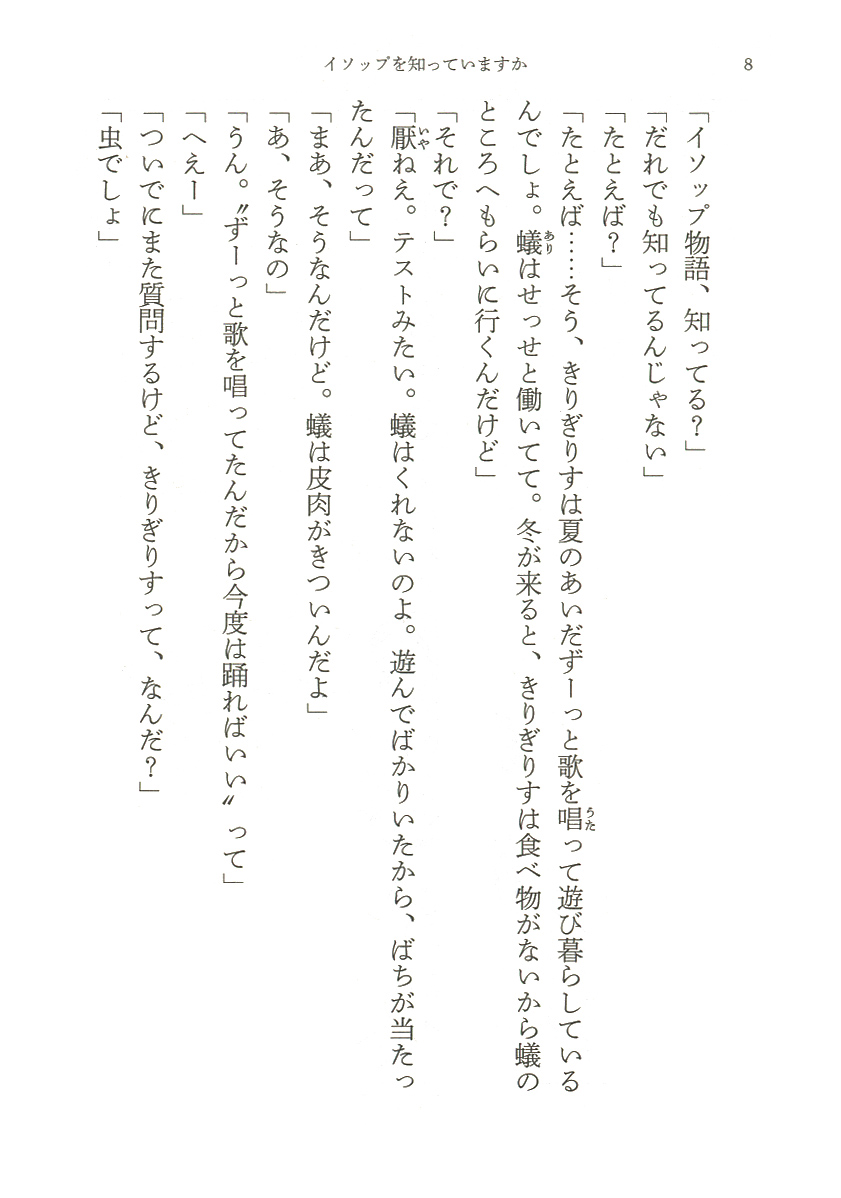 イソップを知っていますか
8
「イソップ物語、知ってる?」
「だれでも知ってるんじゃない」
「たとえば?」
「たとえば……そう、きりぎりすは夏のあいだずーっと歌を唱って遊び暮らしている
んでしょ。蟻はせっせと働いてて。冬が来ると、きりぎりすは食べ物がないから蟻の
ところへもらいに行くんだけど」
「それで?」
「厭ねえ。テストみたい。蟻はくれないのよ。遊んでばかりいたから、ばちが当たっ
たんだって」
「まあ、そうなんだけど。蟻は皮肉がきついんだよ」
「あ、そうなの」
「うん。〝ずーっと歌を唱ってたんだから今度は踊ればいい〟って」
「へえー」
「ついでにまた質問するけど、きりぎりすって、なんだ?」
「虫でしょ」